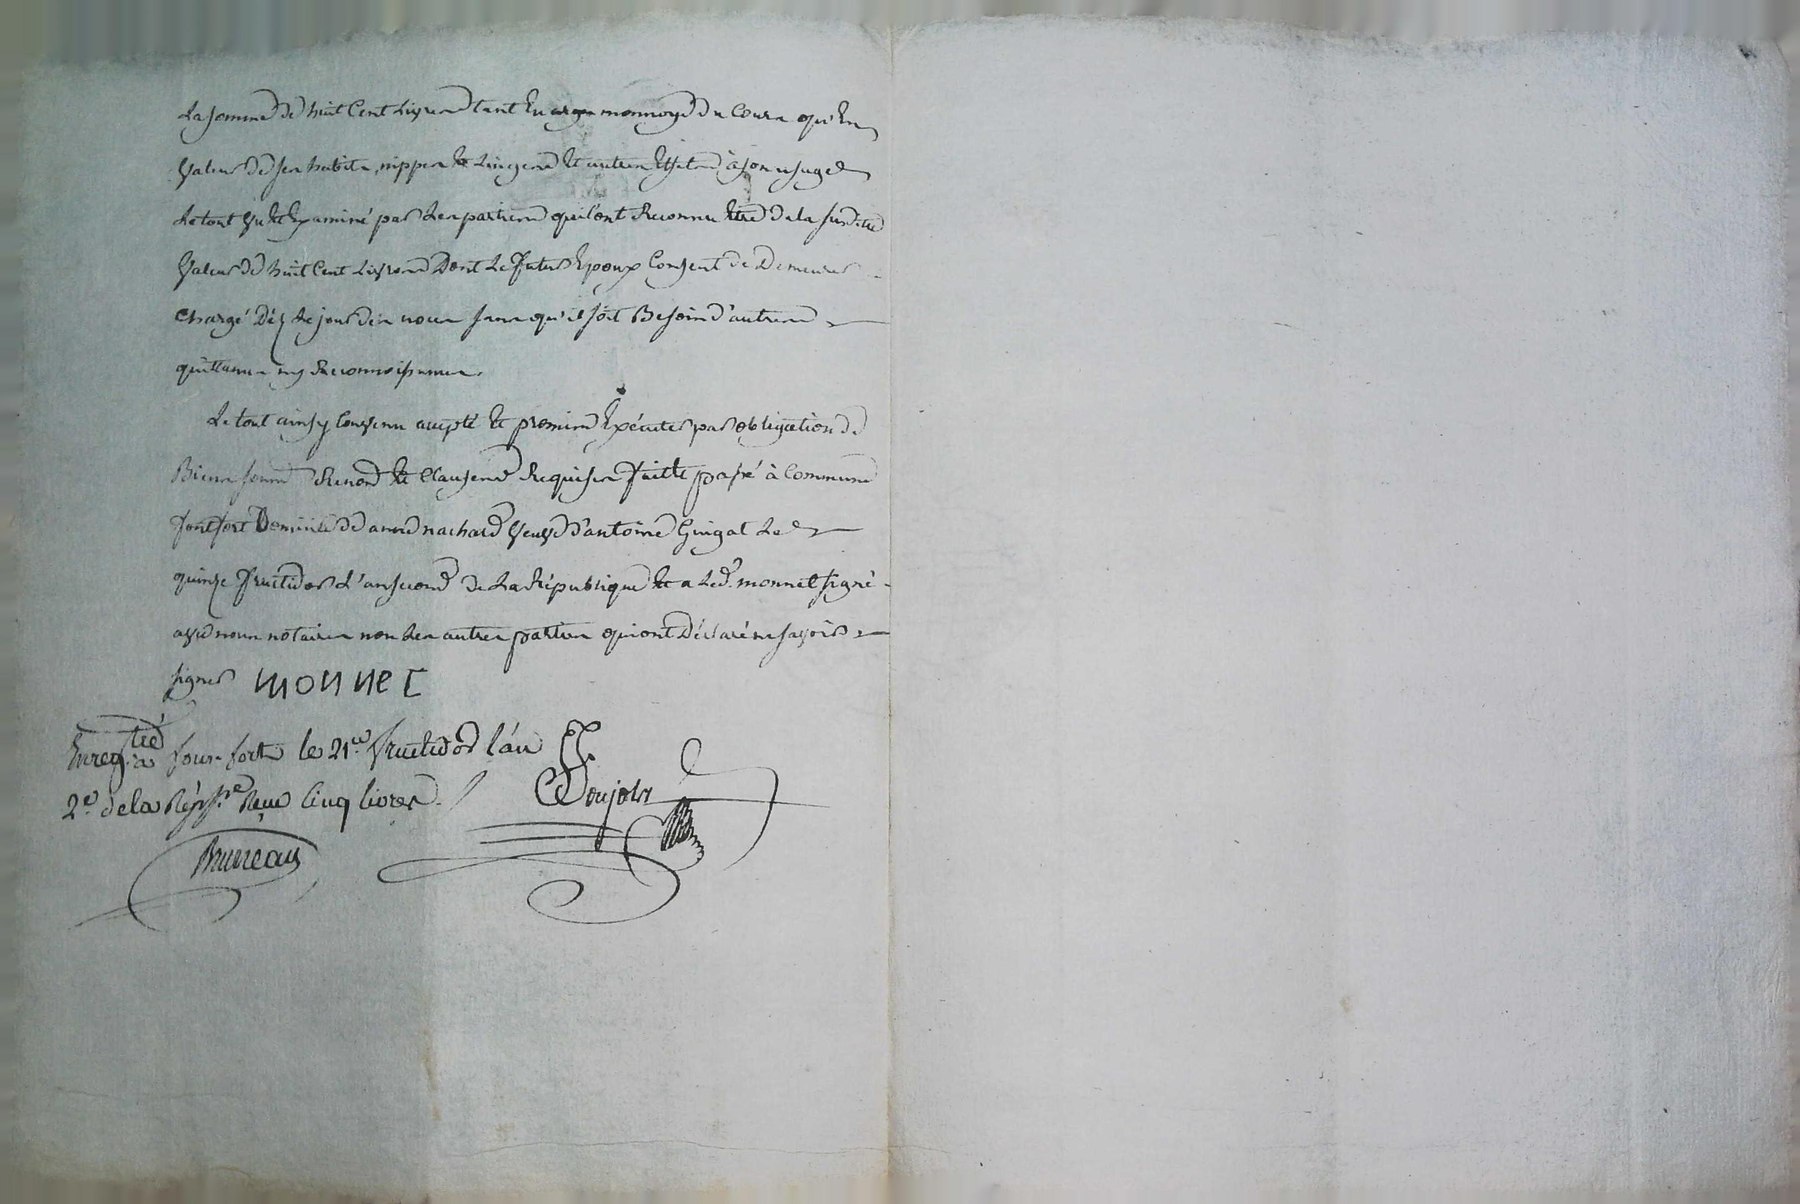 La somme de huit Cent Livres tant En argen monnoyé du Cours qu'En
Valeur de ses habits, nippes et Linges et autres Effets à son usage
Le tout Vu et Examiné par Les parties qu'ils ont Reconnu être de la susditte
Valeur de huit Cent Livres Dont Le futur Epoux Consent de Demeurer
Chargé Dès Le jour des noces sans qu'il soit Besoin d'autres
quittances ny Reconnoissances.
Le tout ainsy Convenu accepté et promis Exécuter par obligation de
Biens soum Renon et Clauses Requises fait et passé à Commune
fontfort Domicile de anne nachard Veuve d'antoine Guigal Le
quinze fructidor L'an second de La République et a Led. monnet signé
avec nous notaires non Les autres parties qui ont Déclaré ne savoir
signer monnet
Enregtré à font-fort le 21e fructidor l'an
2e de la Répque Reçu Cinq livres
Bruneau